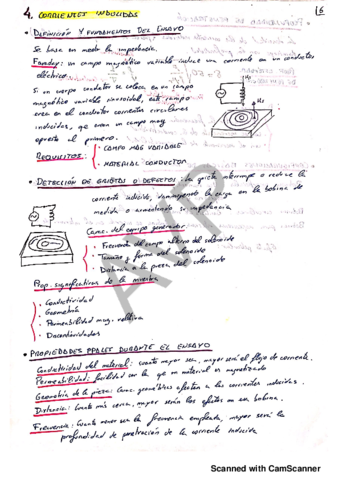 4. CORRIENTES INDUCIDAS
6
• DEFINICIÓN Y FUNDAMENTOS DEL ENSAYO
Se basa en medir la impedancia.
Faraday: un campo magnético variable induce una corriente en un conductor
eléctrico.
Si un cuerpo conductor se coloca en un campo
magnético variable sinusoidal, este campo
crea en el conductor corrientes circulares
inducidas, que crean un campo mag
opuesto al primero.
REQUISITOS:
• CAMPO MAG VARIABLE
• MATERIAL CONDUCTOR
• DETECCIÓN DE GRIETAS O DEFECTOS: La grieta interrumpe o reduce la
corriente inducida, disminuyendo la carga en la bobina de
medida o aumentando su impedancia
Carac. del campo generador
• Frecuencia del campo alterno del solenoide
• Tamaño y forma del solenoide
• Distancia a la pieza del solenoide
Prop. significativas de la muestra
• Conductividad
• Geometría
• Permeabilidad mag. relativa
• Discontinuidades
• PROPIEDADES PPALES DURANTE EL ENSAYO
Conductividad del material: cuanto mayor sea, mayor será el flujo de corriente.
Permeabilidad: facilidad con la que un material es magnetizado
Geometría de la pieza: Carac. geométricas afectan a las corrientes inducidas.
Distancia: Cuanto más cerca, mayor serán los efectos en una bobina.
Frecuencia: Cuanto menor sea la frecuencia empleada, mayor será la
profundidad de penetración de la corriente inducida
Scanned with CamScanner